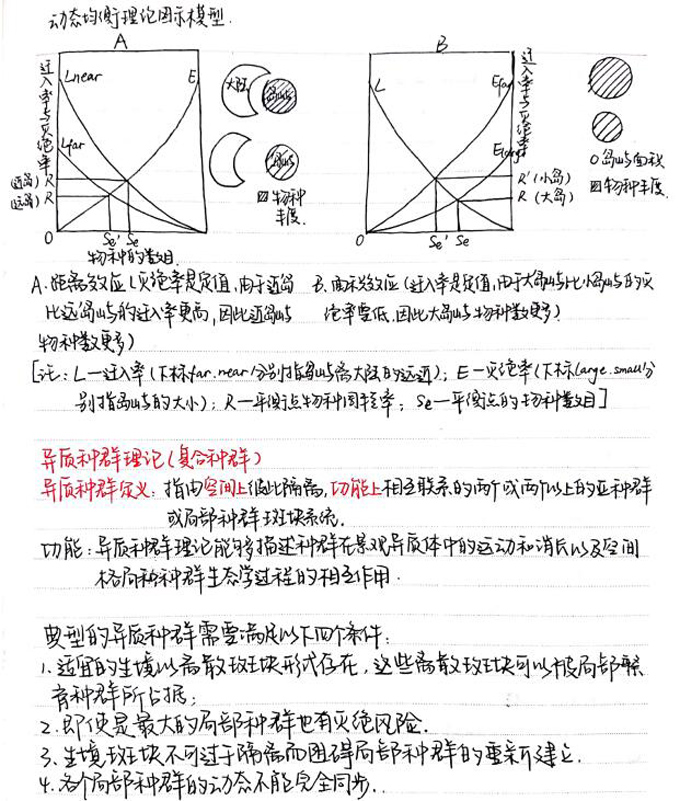 动态均衡理论图示模型.
A
B
迁入率与灭绝率
Lnear
E
Lfar
(近岛) R
(远岛) R
0
Se' Se
物种的数目
大陆
岛屿
岛屿
物种丰度.
L
Efar
Elarge
迁入率与灭绝率
R'(小岛)
R (大岛)
0
Se' Se
岛屿面积
物种丰度.
A. 距离效应(灭绝率是定值,由于近岛
比远岛屿的迁入率更高,因此近岛屿
物种数更多)
B. 面积效应(迁入率是定值,由于大岛屿比小岛屿的灭
绝率要低,因此大岛屿物种数更多)
[注: L—迁入率(下标far.near分别指岛屿离大陆的远近); E—灭绝率(下标large.small分
别指岛屿的大小); R—平衡点物种周转率; Se—平衡点的物种数目]
异质种群理论(复合种群)
异质种群定义: 指由空间上彼此隔离,功能上相互联系的两个或两个以上的亚种群
或局部种群斑块系统.
功能: 异质种群理论能够描述种群在景观异质体中的运动和消长以及空间
格局和种群生态学过程的相互作用.
典型的异质种群需要满足以下四个条件:
1. 适宜的生境以离散斑块形式存在,这些离散斑块可以被局部繁
育种群所占据;
2. 即使是最大的局部种群也有灭绝风险.
3. 生境斑块不可过于隔离而阻碍局部种群的重新建立.
4. 各个局部种群的动态不能完全同步.